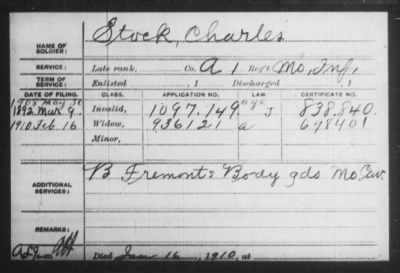 NAME OF SOLDIER: Stock, Charles
SERVICE: Late rank, Co. A 1 Reg't Mo. Inf.
TERM OF SERVICE: Enlisted , 1 Discharged , 1
DATE OF FILING. CLASS. APPLICATION NO. LAW. CERTIFICATE NO.
1908 May
1892 Mar 9 Invalid, 1097.149 J 838.840
1910 Feb. 16 Widow, 936121 a 698401
Minor,
ADDITIONAL SERVICES: B Fremonts Body gds Mo Cav.
REMARKS:
Died Jan 16, 1910, at